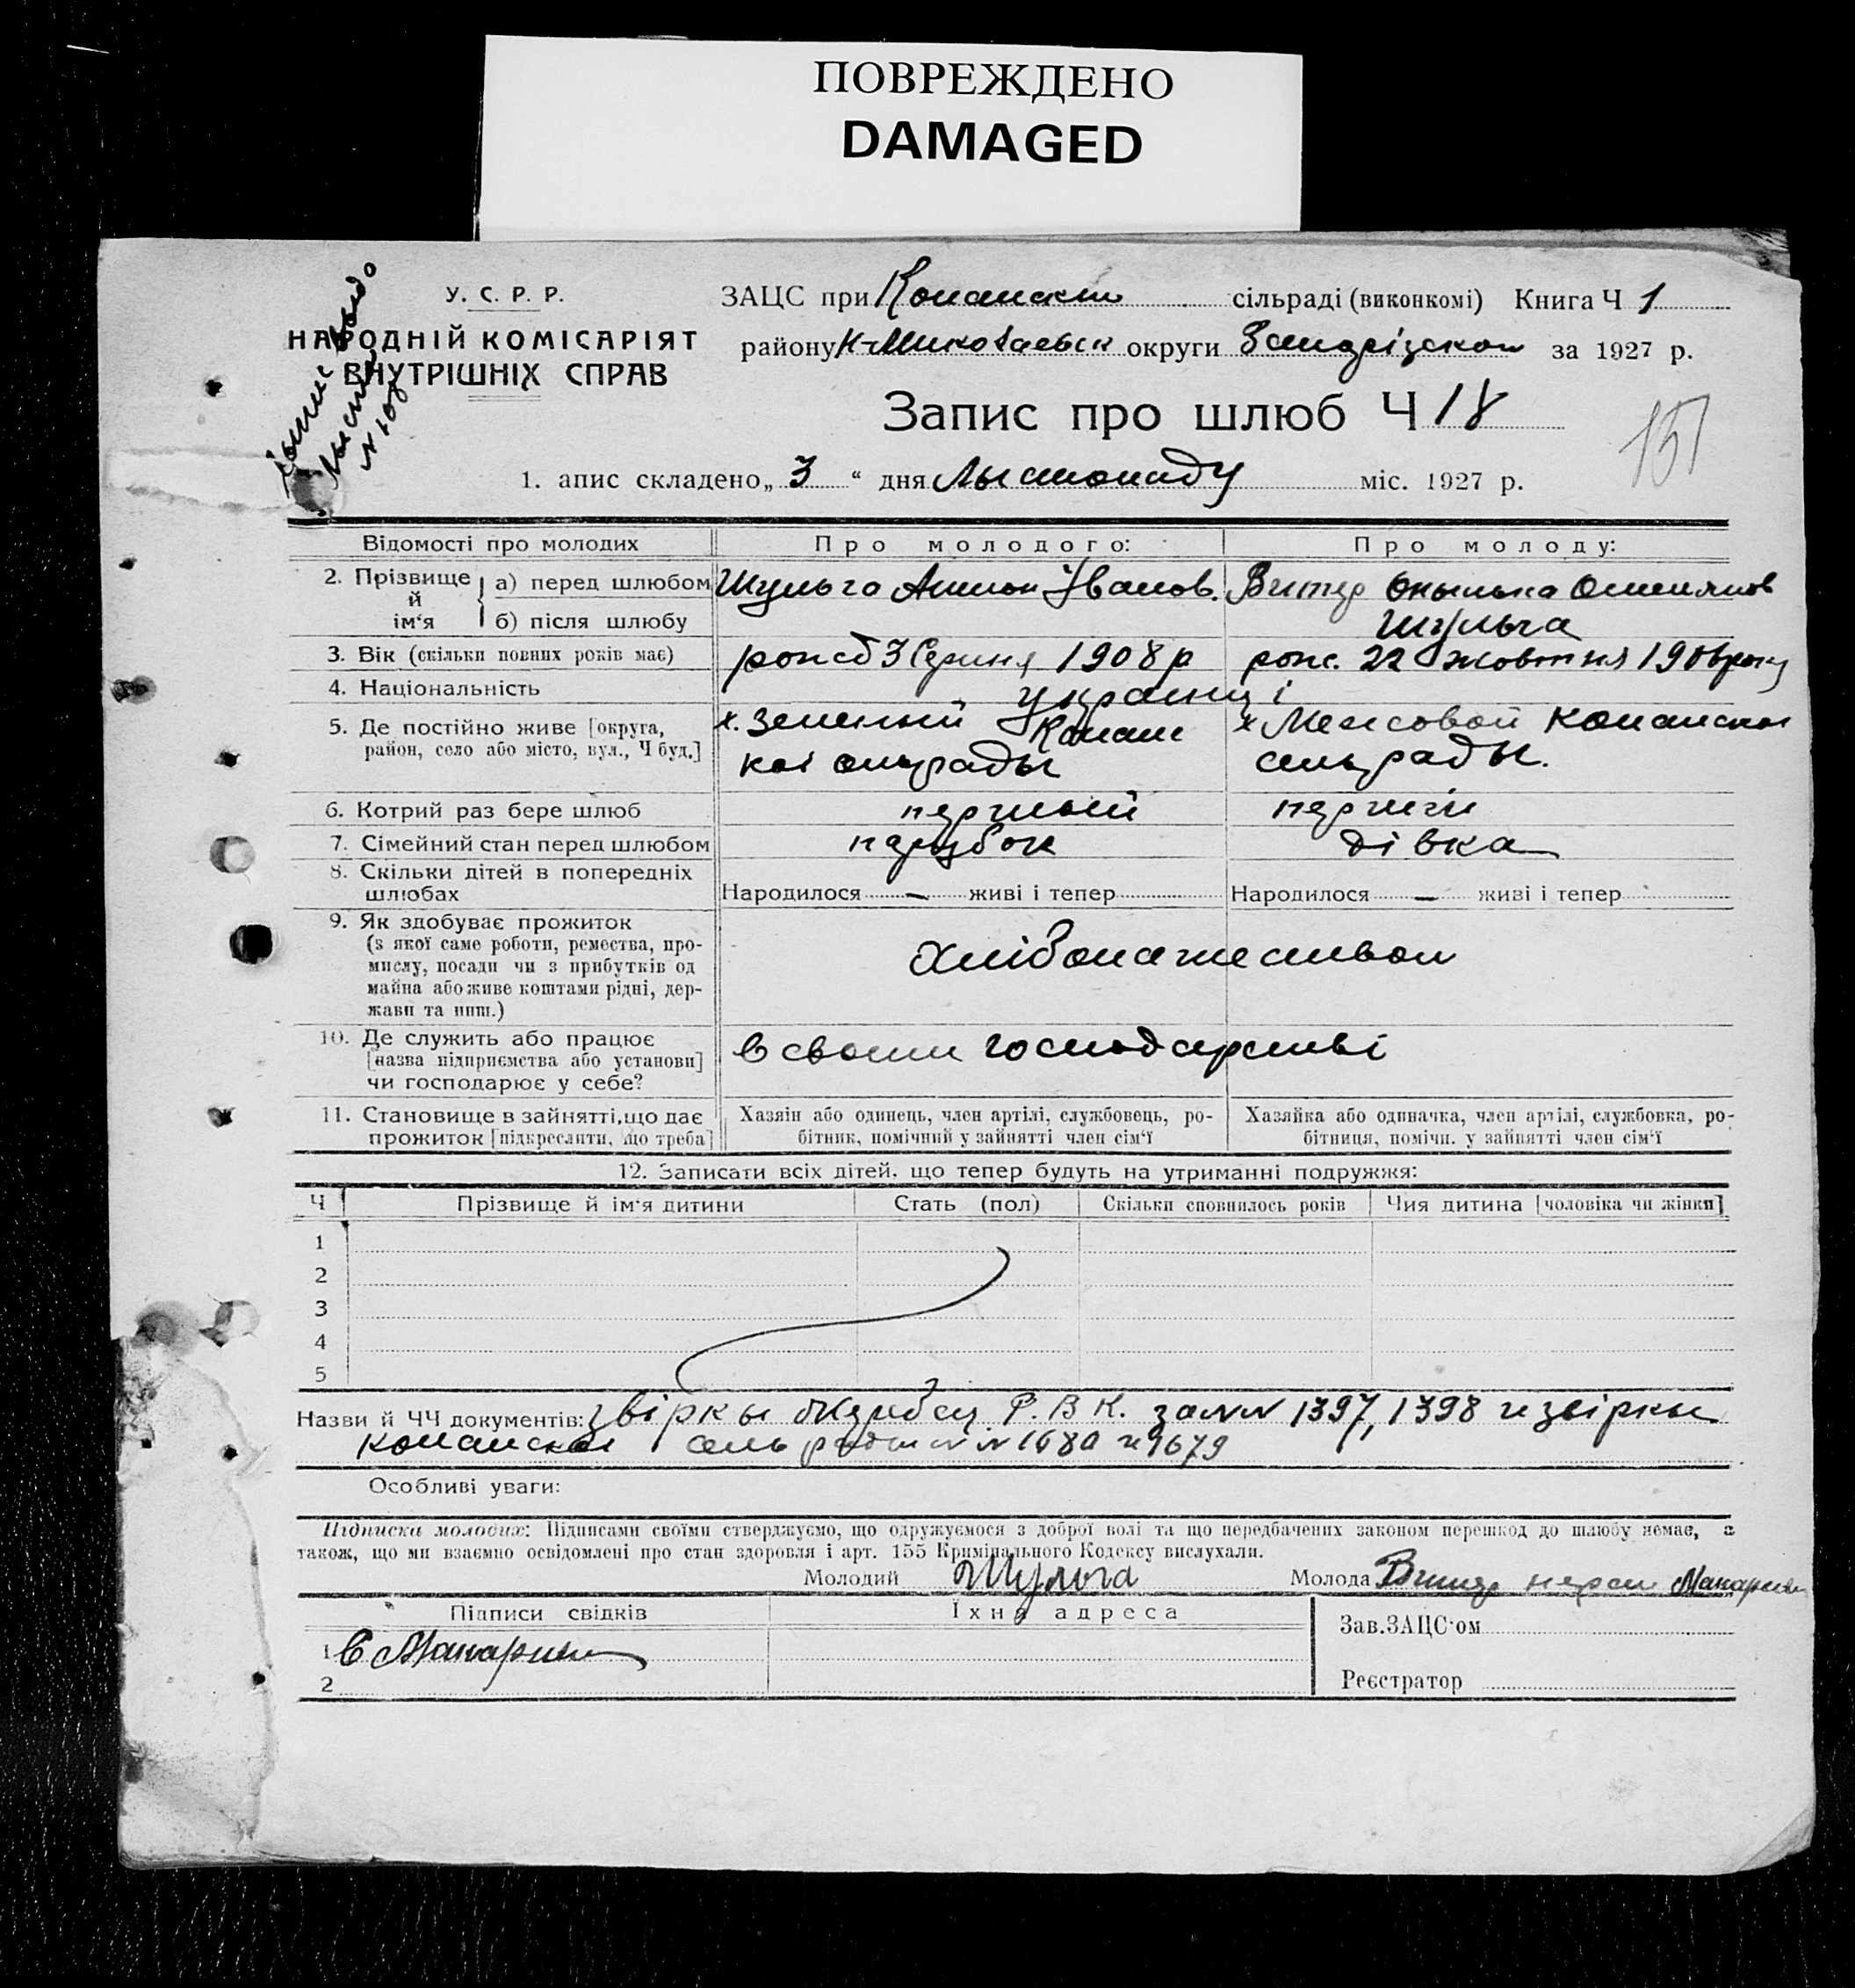 ПОВРЕЖДЕНО
DAMAGED
У. С. Р. Р.
НАРОДНІЙ КОМІСАРІЯТ
ВНУТРІШНІХ СПРАВ
ЗАЦС при сільраді (виконкомі) Книга Ч 1
району Н-Миколаевск округи за 1927 р.
Запис про шлюб Ч 18
151
1. апис складено „ 3 “ дня Лыстопаду міс. 1927 р.
Відомості про молодих Про молодого: Про молоду:
2. Прізвище й ім‘я а) перед шлюбом Шульга Антон Іванов. Витер
б) після шлюбу Шульга
3. Вік (скільки повних років має) 3 Серпня 1908 р 22 жовтня
4. Національність украинці
5. Де постійно живе [округа, х. Зеленый х Межсовой Копанской
район, село або місто, вул., Ч буд.] сильрады.
6. Котрий раз бере шлюб первый
7. Сімейний стан перед шлюбом парубок дівка
8. Скільки дітей в попередніх
шлюбах Народилося — живі і тепер Народилося — живі і тепер
9. Як здобуває прожиток
(з якої саме роботи, ремества, про-
мислу, посади чи з прибутків од
майна або живе коштами рідні, дер-
жави та инш.)
хлібопашеством
10. Де служить або працює
[назва підприємства або установи]
чи господарює у себе?
в своим господарстві
11. Становище в зайнятті, що дає
прожиток [підкреслити, що треба]
Хазяін або одинець, член артілі, службовець, ро-
бітник, помічний у зайнятті член сім‘ї
Хазяйка або одиначка, член артілі, службовка, ро-
бітниця, помічн. у зайнятті член сім‘ї
12. Записати всіх дітей, що тепер будуть на утриманні подружжя:
Ч Прізвище й ім‘я дитини Стать (пол) Скільки сповнилось років Чия дитина [чоловіка чи жінки]
1
2
3
4
5
Назви й ЧЧ документів: звіркы Р. В К. за NN 1397, 1398 и звіркы
Копанской 1679
Особливі уваги:
Підписка молодих: Підписами своїми стверджуємо, що одружуємося з доброї волі та що передбачених законом перешкод до шлюбу немає, а
також, що ми взаємно освідомлені про стан здоровля і арт. 155 Кримінального Кодексу вислухали.
Молодий Шульга Молода Витер
Підписи свідків Їхня адреса Зав.ЗАЦС‘ом
1
2 Реєстратор